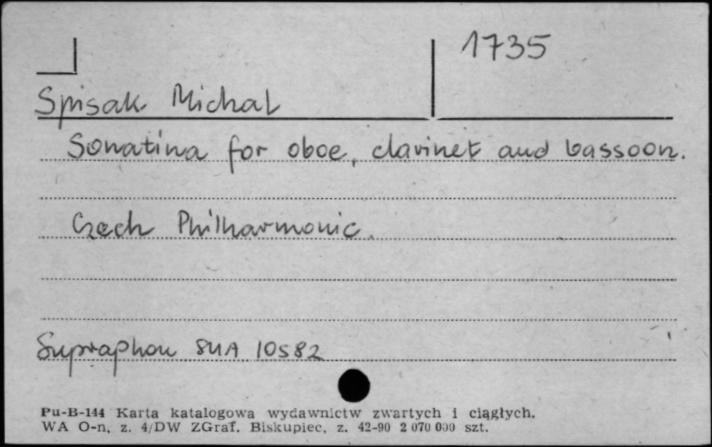 1735
Spisak Michal
Sonatina for oboe, clarinet and bassoon.
Czech Philharmonic.
Supraphon SUA 10582
Pu-B-144 Karta katalogowa wydawnictw zwartych i ciągłych.
WA O-n, z. 4/DW ZGraf. Biskupiec, z. 42-90 2 070 000 szt.